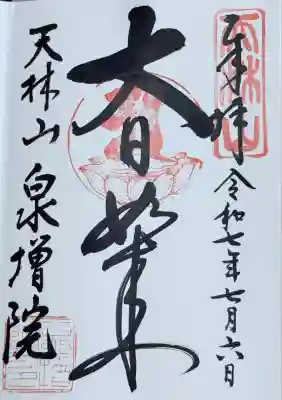 奉拝
令和七年七月六日
大日如来
天林山 泉増院